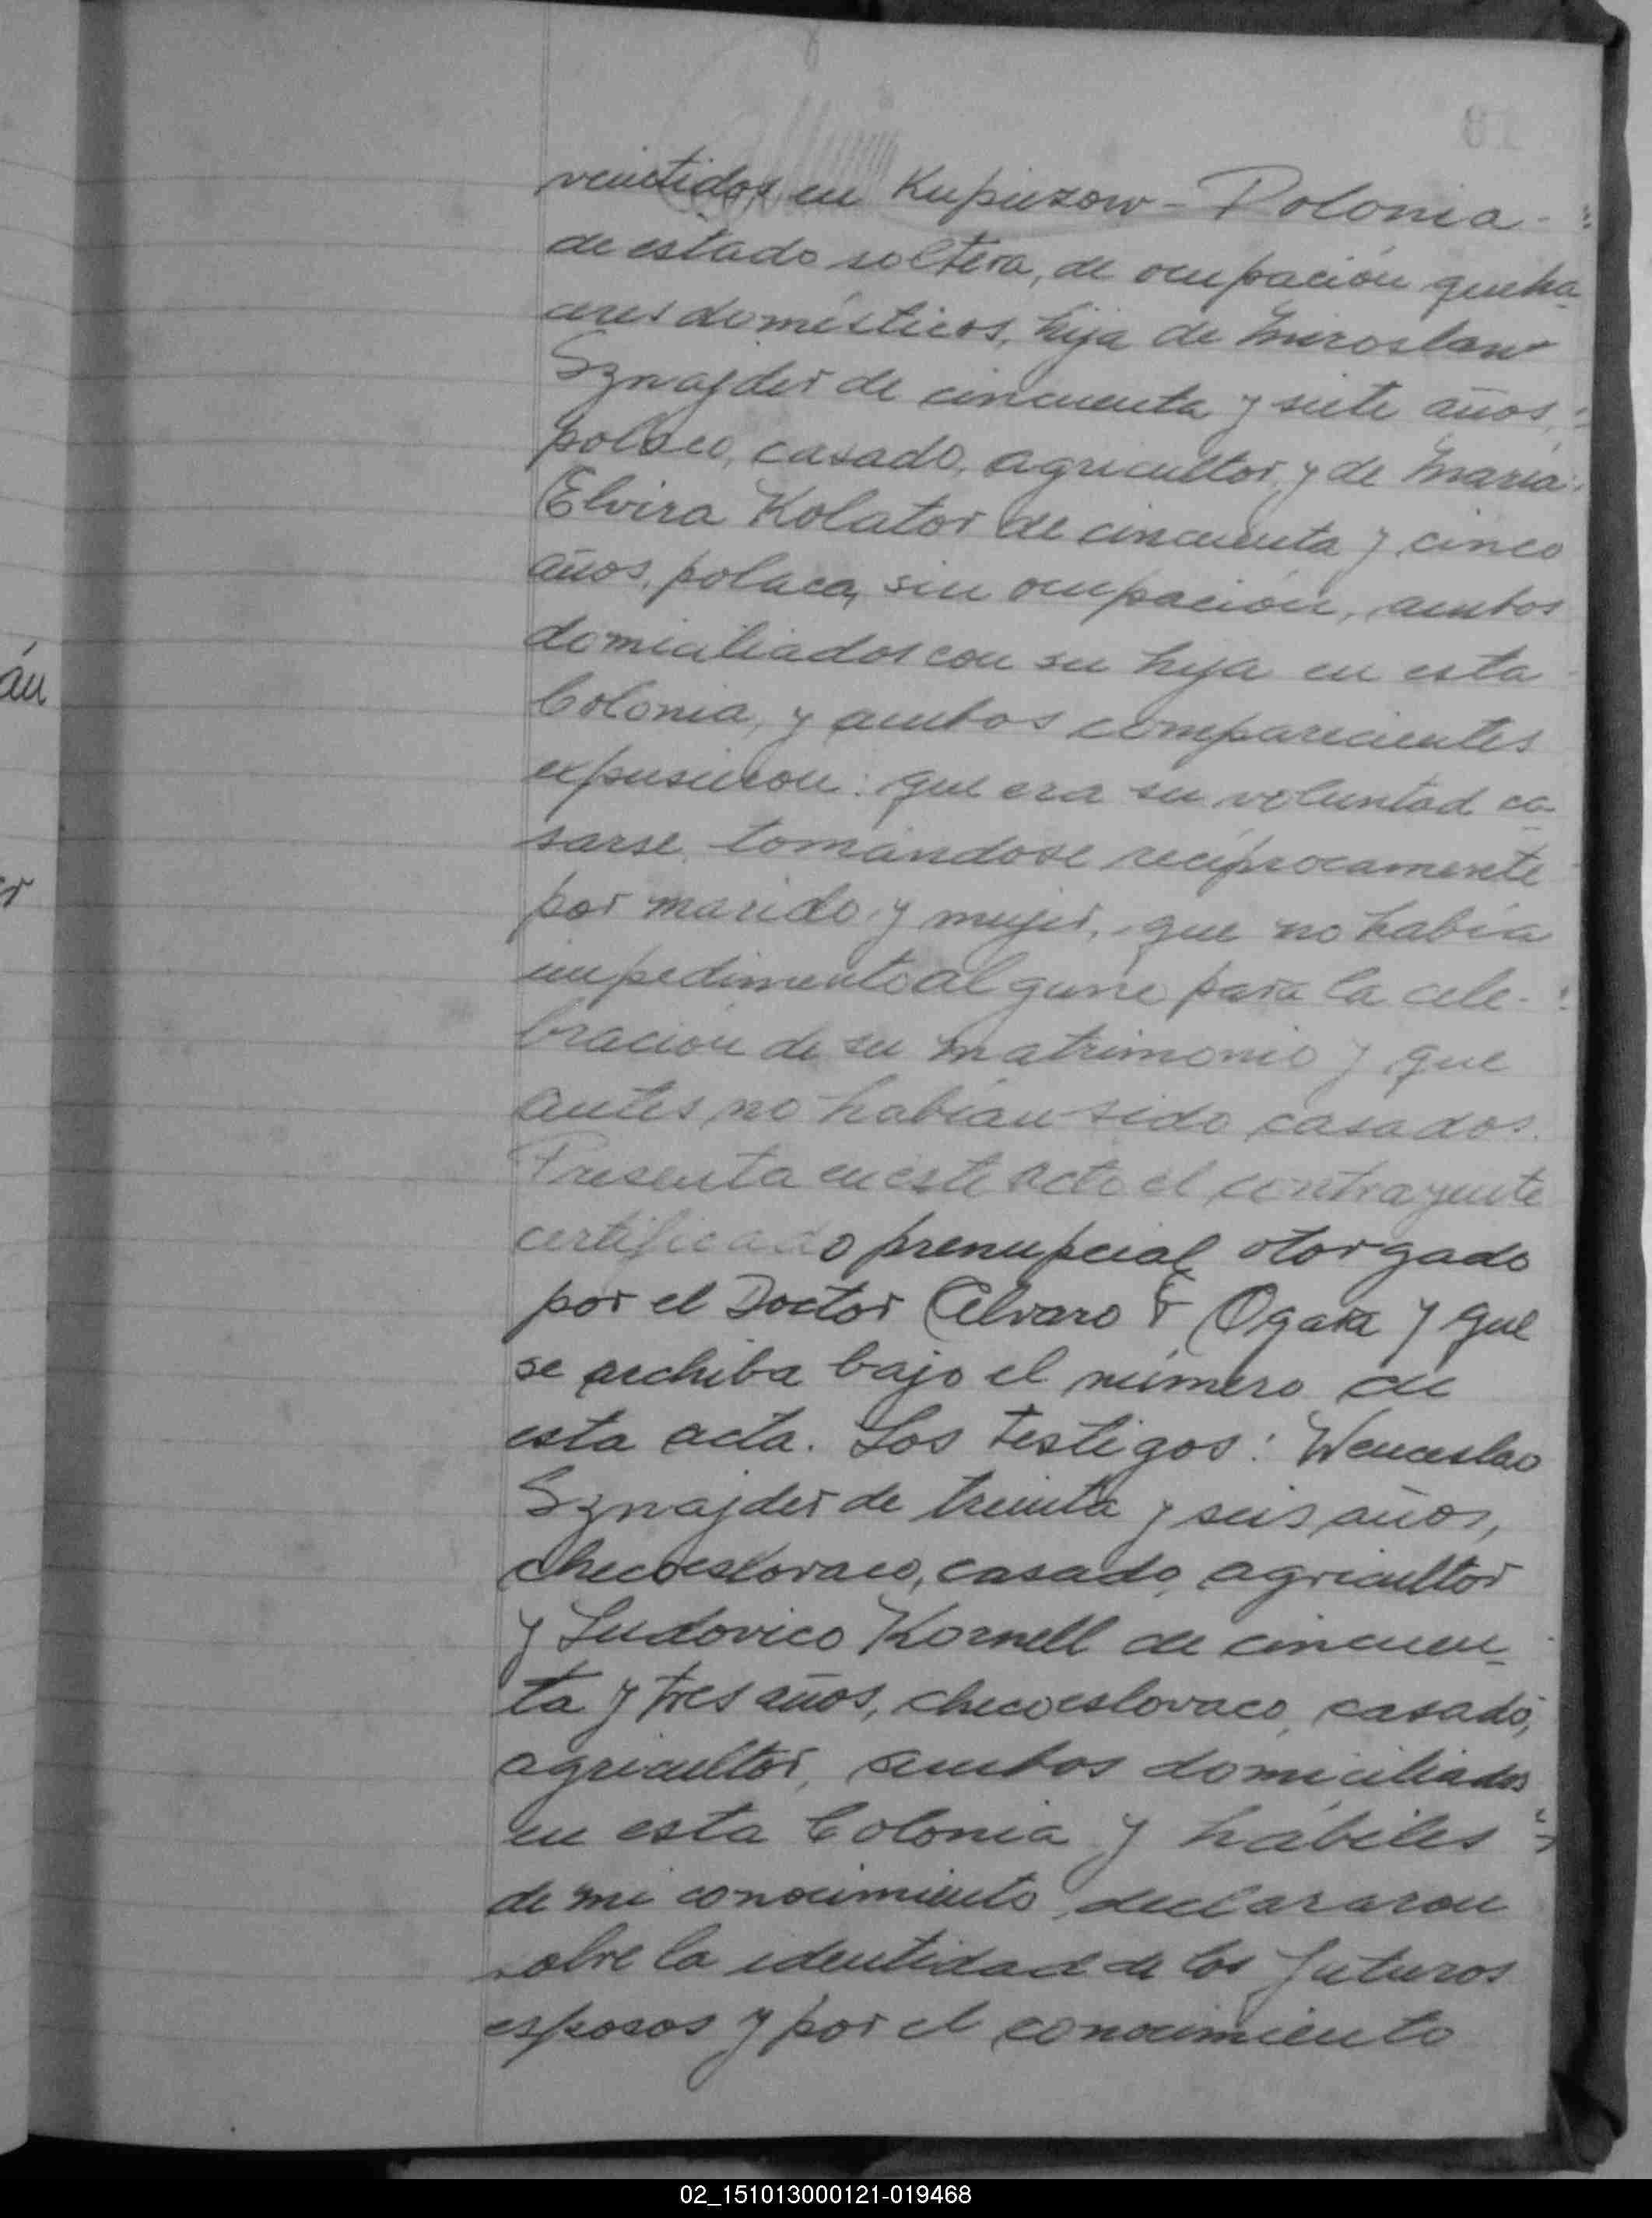 veintidos en Kupiczow - Polonia -
de estado soltera, de ocupación queha-
ceres domésticos, hija de Miroslaw
Sznajder de cincuenta y siete años,
polaco, casado, agricultor, y de Maria
Elvira Kolator de cincuenta y cinco
años, polaca, sin ocupación, ambos
domiciliados con su hija en esta
Colonia, y ambos comparecientes
expusieron: que era su voluntad ca-
sarse tomándose recíprocamente
por marido y mujer, que no había
impedimento alguno para la cele-
bración de su matrimonio y que
antes no habían sido casados.
Presenta en este acto el contrayente
certificado prenupcial otorgado
por el Doctor Alvaro F Ogara y que
se archiba bajo el número de
esta acta. Los testigos: Wenceslao
Sznajder de treinta y seis años,
checoeslovaco, casado, agricultor
y Ludovico Kornell de cincuen-
ta y tres años, checoeslovaco, casado,
agricultor, ambos domiciliados
en esta Colonia y hábiles
de mi conocimiento, declararon
sobre la identidad de los futuros
esposos y por el conocimiento
án
er
02_151013000121-019468